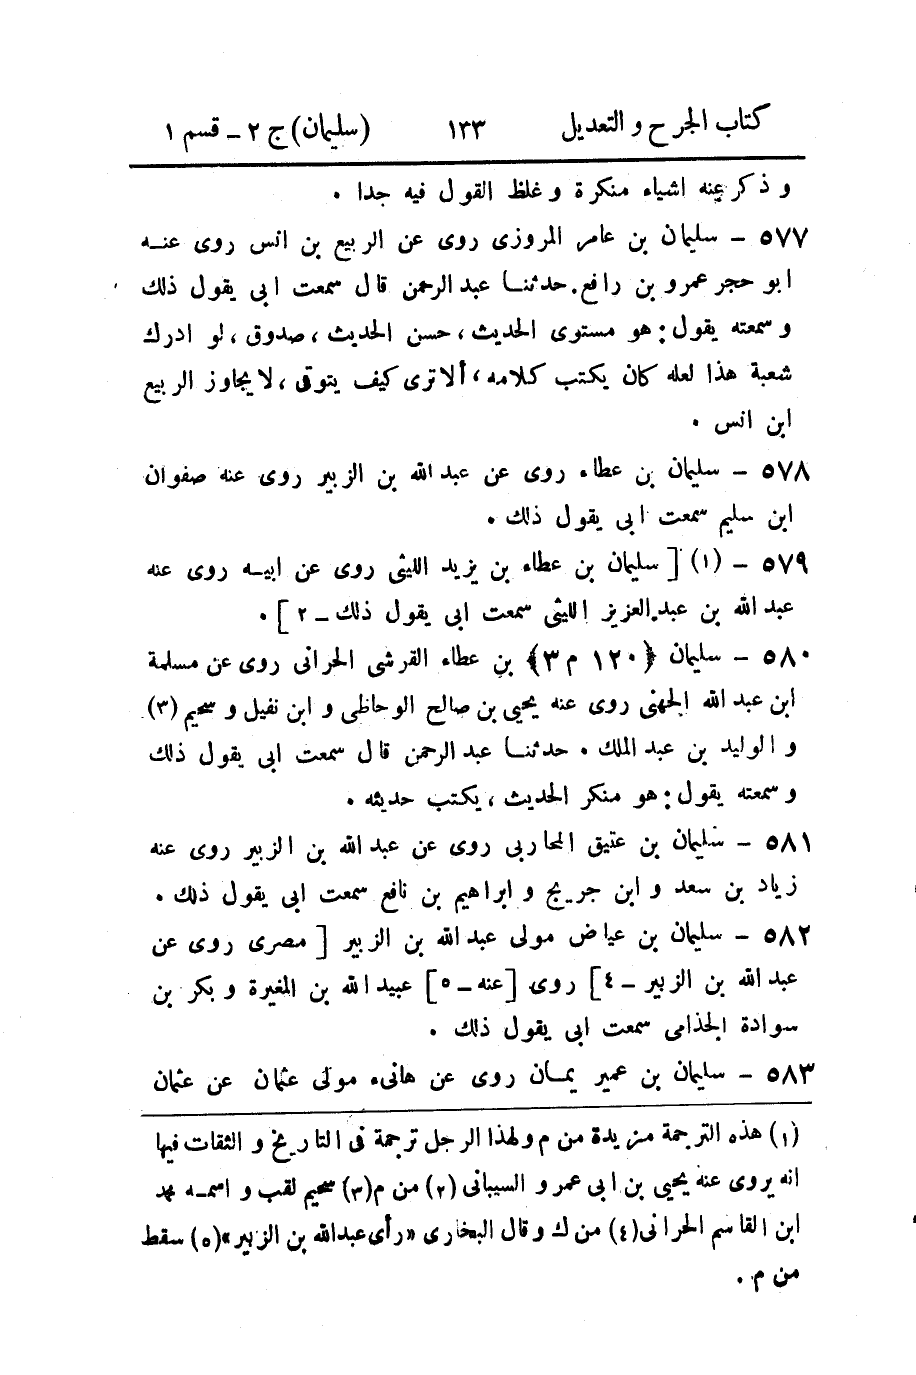 كتاب الجرح و التعديل ١٣٣ (سليمان) ج ٢ - قسم ١
و ذكر عنه اشياء منكرة و غلظ القول فيه جدا .
٥٧٧ - سليمان بن عامر المروزى روى عن الربيع بن انس روى عنه
ابو حجر عمرو بن رافع . حدثنا عبد الرحمن قال سمعت ابى يقول ذلك
و سمعته يقول : هو مستوى الحديث ، حسن الحديث ، صدوق ، لو ادرك
شعبة هذا لعله كان يكتب كلامه ، ألا ترى كيف يتوقى ، لا يجاوز الربيع
ابن انس .
٥٧٨ - سليمان بن عطاء روى عن عبد الله بن الزبير روى عنه صفوان
ابن سليم سمعت ابى يقول ذلك .
٥٧٩ - (١) [ سليمان بن عطاء بن يزيد الليثى روى عن ابيه روى عنه
عبد الله بن عبد العزيز الليثى سمعت ابى يقول ذلك - ٢ ] .
٥٨٠ - سليمان ﴿١٢٠ م ٣﴾ بن عطاء القرشى الحرانى روى عن مسلمة
ابن عبد الله الجهنى روى عنه يحيى بن صالح الوحاظى و ابن نفيل و سحيم (٣)
و الوليد بن عبد الملك . حدثنا عبد الرحمن قال سمعت ابى يقول ذلك
و سمعته يقول : هو منكر الحديث ، يكتب حديثه .
٥٨١ - سليمان بن عتيق المحاربى روى عن عبد الله بن الزبير روى عنه
زياد بن سعد و ابن جريج و ابراهيم بن نافع سمعت ابى يقول ذلك .
٥٨٢ - سليمان بن عياض مولى عبد الله بن الزبير [ مصرى روى عن
عبد الله بن الزبير - ٤ ] روى [ عنه - ٥ ] عبيد الله بن المغيرة و بكر بن
سوادة الجذامى سمعت ابى يقول ذلك .
٥٨٣ - سليمان بن عمير يمان روى عن هانىء مولى عثمان عن عثمان
(١) هذه الترجمة مزيدة من م و لهذا الرجل ترجمة فى التاريخ و الثقات فيها
انه يروى عنه يحيى بن ابى عمرو السيبانى (٢) من م (٣) سحيم لقب و اسمه محمد
ابن القاسم الحرانى (٤) من ك و قال البخارى «رأى عبد الله بن الزبير» (٥) سقط
من م .